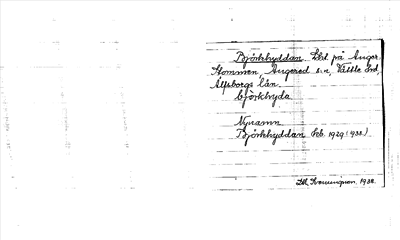 Björkhyddan Lht på Anger
Stommen, Angered s:n, Vättle hd,
Älfsborgs län.
björkhyda
Nynamn
Björkhyddan Feb. 1929 (1932)
1932.